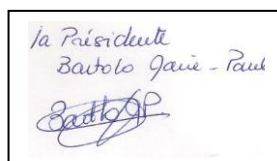 la Présidente
Bartolo Janie - Paule
Bartolo JP